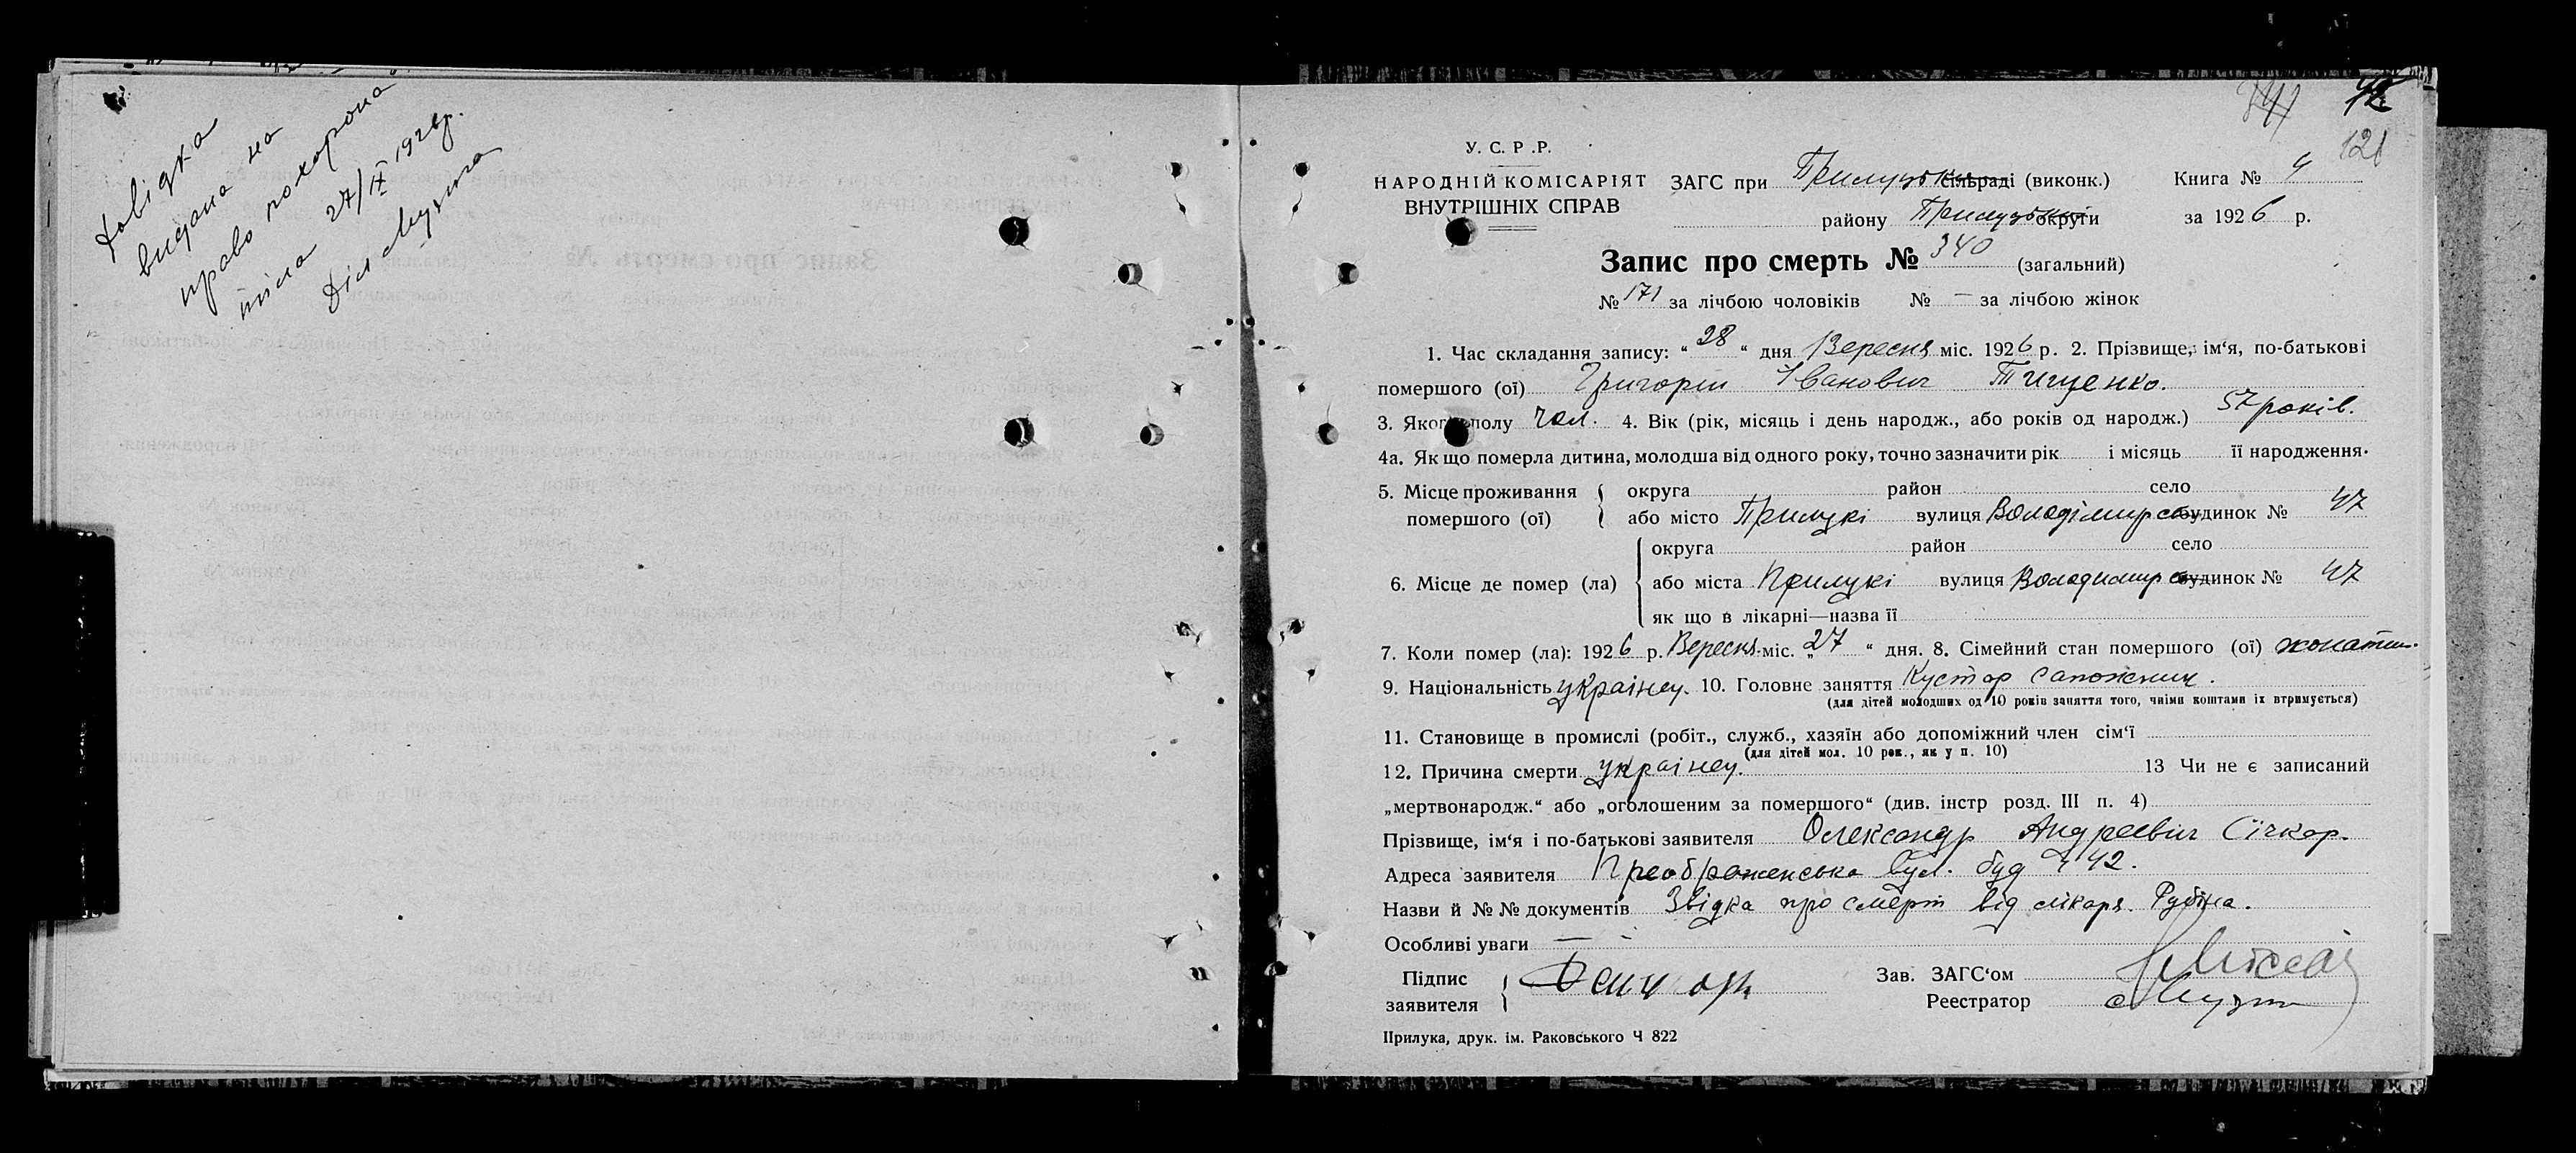 Довідка
видана на
право похорона
тіла 27/IX 1926 р.
Діл Музыка
42
121
У. С. Р. Р.
НАРОДНІЙ КОМІСАРІЯТ
ВНУТРІШНІХ СПРАВ
ЗАГС при Прилуцьк сільраді (виконк.) Книга № 4
району Прилуцької округи за 1926 р.
Запис про смерть № 340 (загальний)
№ 171 за лічбою чоловіків № — за лічбою жінок
1. Час складання запису: “ 28 “ дня Вересня міс. 1926 р. 2. Прізвище, ім‘я, по-батькові
помершого (ої) Григорій Іванович Тищенко.
3. Якого полу чол. 4. Вік (рік, місяць і день народж., або років од народж.) 57 років.
4а. Як що померла дитина, молодша від одного року, точно зазначити рік і місяць її народження.
5. Місце проживання помершого (ої) округа район село
або місто Прилукі вулиця Володімирск будинок № 47
6. Місце де помер (ла) округа район село
або міста Прилукі вулиця Володимирск будинок № 47
як що в лікарні—назва її
7. Коли помер (ла): 1926 р. Вересня міс. „ 27 “ дня. 8. Сімейний стан помершого (ої) жонатий.
9. Національність українец. 10. Головне заняття Кустар Сапожник.
(для дітей молодших од 10 років заняття того, чиїми коштами їх втримується)
11. Становище в промислі (робіт., служб., хазяїн або допоміжний член сім‘ї
(для дітей мол. 10 рок., як у п. 10)
12. Причина смерти українец. 13 Чи не є записаний
„мертвонародж.“ або „оголошеним за помершого“ (див. інстр розд. III п. 4)
Прізвище, ім‘я і по-батькові заявителя Олександр Андреевич Січкар.
Адреса заявителя Преображенська вул. буд № 42.
Назви й № № документів Звідка про смерт від лікаря Рубіна.
Особливі уваги — -
Підпис заявителя
Зав. ЗАГС‘ом
Реестратор Музыка
Прилука, друк. ім. Раковського Ч 822